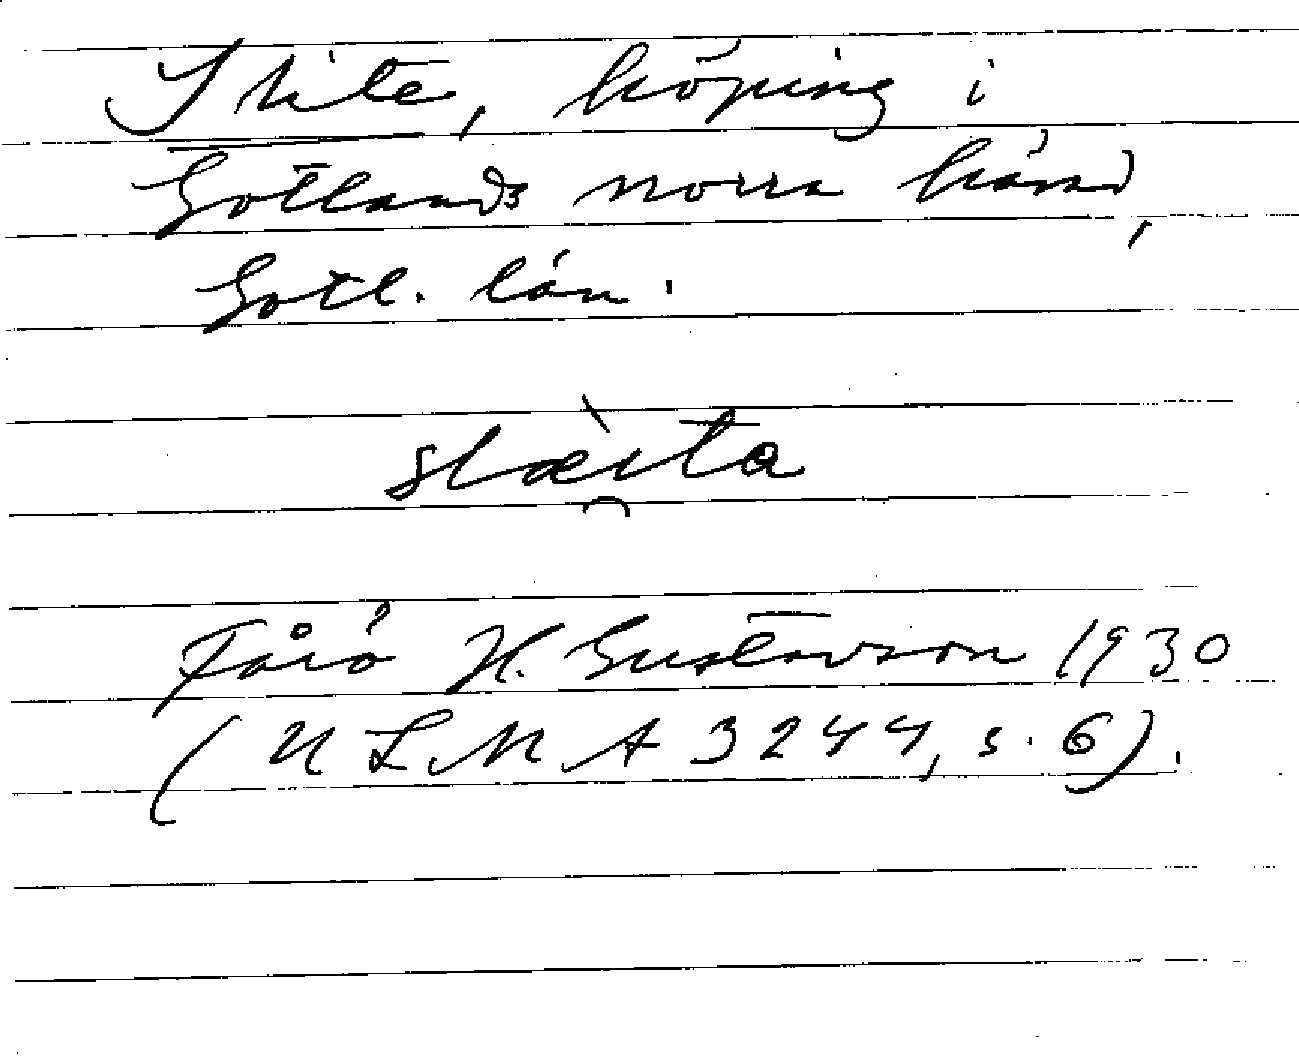 Slite, köping i
Gotlands norra härad,
Gotl. län.
slæ̀i̯ta
Fårö H. Gustavson 1930
(ULMA 3244, s. 6).